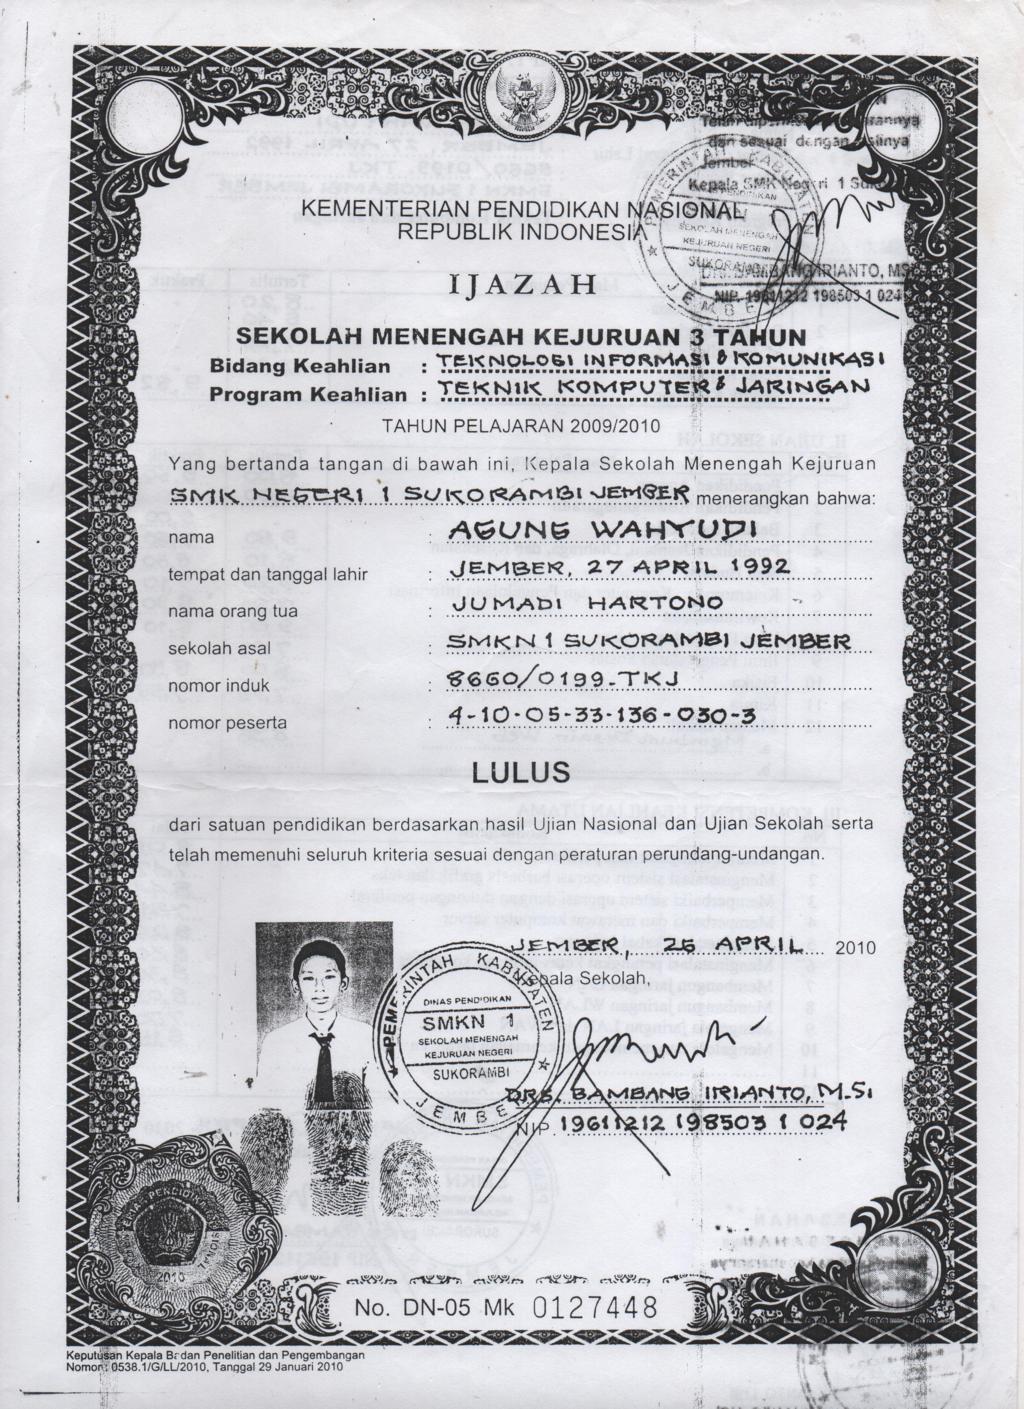 dan sesuai dengan aslinya
Jember
Kepala SMK Negeri 1
KEMENTERIAN PENDIDIKAN NASIONAL
REPUBLIK INDONESIA
PEMERINTAH KABUPATEN
SEKOLAH MENENGAH
KEJURUAN NEGERI
SUKORAMBI
JEMBER
Drs. BAMBANG IRIANTO, MSi
NIP. 19611212 198503 1 024
IJAZAH
SEKOLAH MENENGAH KEJURUAN 3 TAHUN
Bidang Keahlian : TEKNOLOGI INFORMASI & KOMUNIKASI
Program Keahlian : TEKNIK KOMPUTER & JARINGAN
TAHUN PELAJARAN 2009/2010
Yang bertanda tangan di bawah ini, Kepala Sekolah Menengah Kejuruan
SMK NEGERI 1 SUKORAMBI JEMBER menerangkan bahwa:
nama : AGUNG WAHYUDI
tempat dan tanggal lahir : JEMBER, 27 APRIL 1992
nama orang tua : JUMADI HARTONO
sekolah asal : SMKN 1 SUKORAMBI JEMBER
nomor induk : 8660/0199-TKJ
nomor peserta : 4-10-05-33-136-030-3
LULUS
dari satuan pendidikan berdasarkan hasil Ujian Nasional dan Ujian Sekolah serta
telah memenuhi seluruh kriteria sesuai dengan peraturan perundang-undangan.
JEMBER, 26 APRIL 2010
Kepala Sekolah,
PEMERINTAH KABUPATEN
DINAS PENDIDIKAN
SMKN 1
SEKOLAH MENENGAH
KEJURUAN NEGERI
SUKORAMBI
JEMBER
DRS. BAMBANG IRIANTO, M.Si
NIP. 19611212 198503 1 024
2010
No. DN-05 Mk 0127448
Keputusan Kepala Badan Penelitian dan Pengembangan
Nomor : 0538.1/G/LL/2010, Tanggal 29 Januari 2010